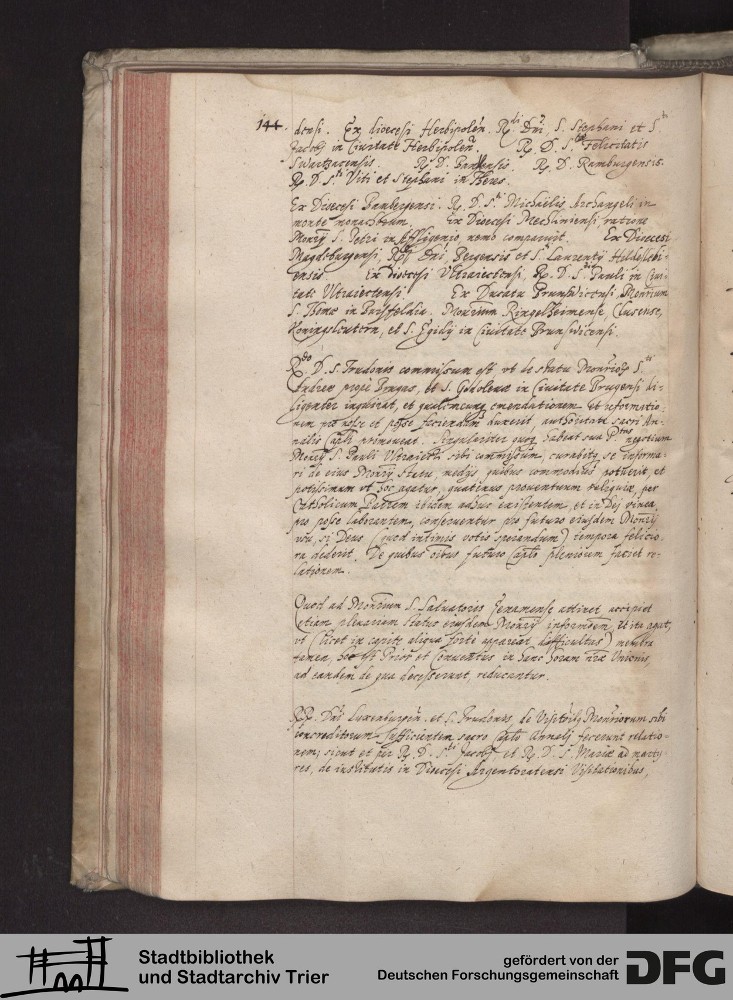 144. densi. Ex dioecesi Herbipolen. R.di Dni, S. Stephani et S.ti
Jacobi in Ciuitate Herbipolen. R. D. S.tae Felicitatis
Swartzacensis. R. D. Banthensis. R. D. Ramburgensis.
R. D. S.ti Viti et Stephani in Theres.
Ex Diocesi Bambergensi. R. D. S.ti Michaelis Archangeli in
monte monachorum. Ex Diocesi Mechliniensi, ratione
Monrij S. Petri in Affligenio, nemo comparuit. Ex Diocesi
Magdeburgensi, R.di Dni, Bergensis et S. Laurentij Heldeslebi-
ensis. Ex Diocesi Vltraiectensi, R. D. S.ti Pauli in Ciui-
tate Vltraiectensi. Ex Ducatu Brunsuicensi, Monrium
S. in Ringelheimense, Clusense,
Koningslutern, et S. Egidij in Ciuitate Brunsuicensi.
R.do D. S. Trudonis commissum est vt de statu Monriorum S.ti
Andreae prope Brugas, et S. Godoleuae in Ciuitate Brugensi di-
ligenter inquirat, et qualemcunque emendationem et reformatio-
nem pro nosse et posse faciendam duxerit, authoritate sacri An-
nalis Capli promoueat. Singulariter quoque habeat sua P.tas negotium
Monrij S. Pauli Vltraiecten. sibi commissum, curabitque se informa-
ri de eius Monrij statu, medijs quibus commodius poterit, et
potissimum vt hoc agatur, quatinus prouentuum reliquiae, per
Catholicum Patrem ibidem adhuc existentem, et in Dei vinea
pro posse laborantem, conseruentur pro futuro eiusdem Monrij
vsu, si Deus (quod intimis votis sperandum) tempora felicio-
ra dederit. De quibus oibus futuro Caplo plenioem faciet re-
lationem.
Quod ad Monrium S. Saluatoris attinet, accipiet
etiam plenariam status eiusdem Monrij informoem, et ita agat,
vt (licet in capite aliqua forte appareat difficultas) membra
tamen, hoc est Prior et Conuentus in hanc horam nrae Vnionis,
ad eandem de qua decesserunt, reducantur.
RR. Dni Luxenburgen. et S. Trudonis, de Visitorib. Monriorum sibi
concreditorum sufficientem sacro Caplo Annali fecerunt relatio-
nem; sicut et per R. D. S.ti Jacobi, et R. D. S. Mariae ad marty-
res, de institutis in Diocesi Argentoratensi Visitationibus,
Stadtbibliothek
und Stadtarchiv Trier
gefördert von der
Deutschen Forschungsgemeinschaft
DFG